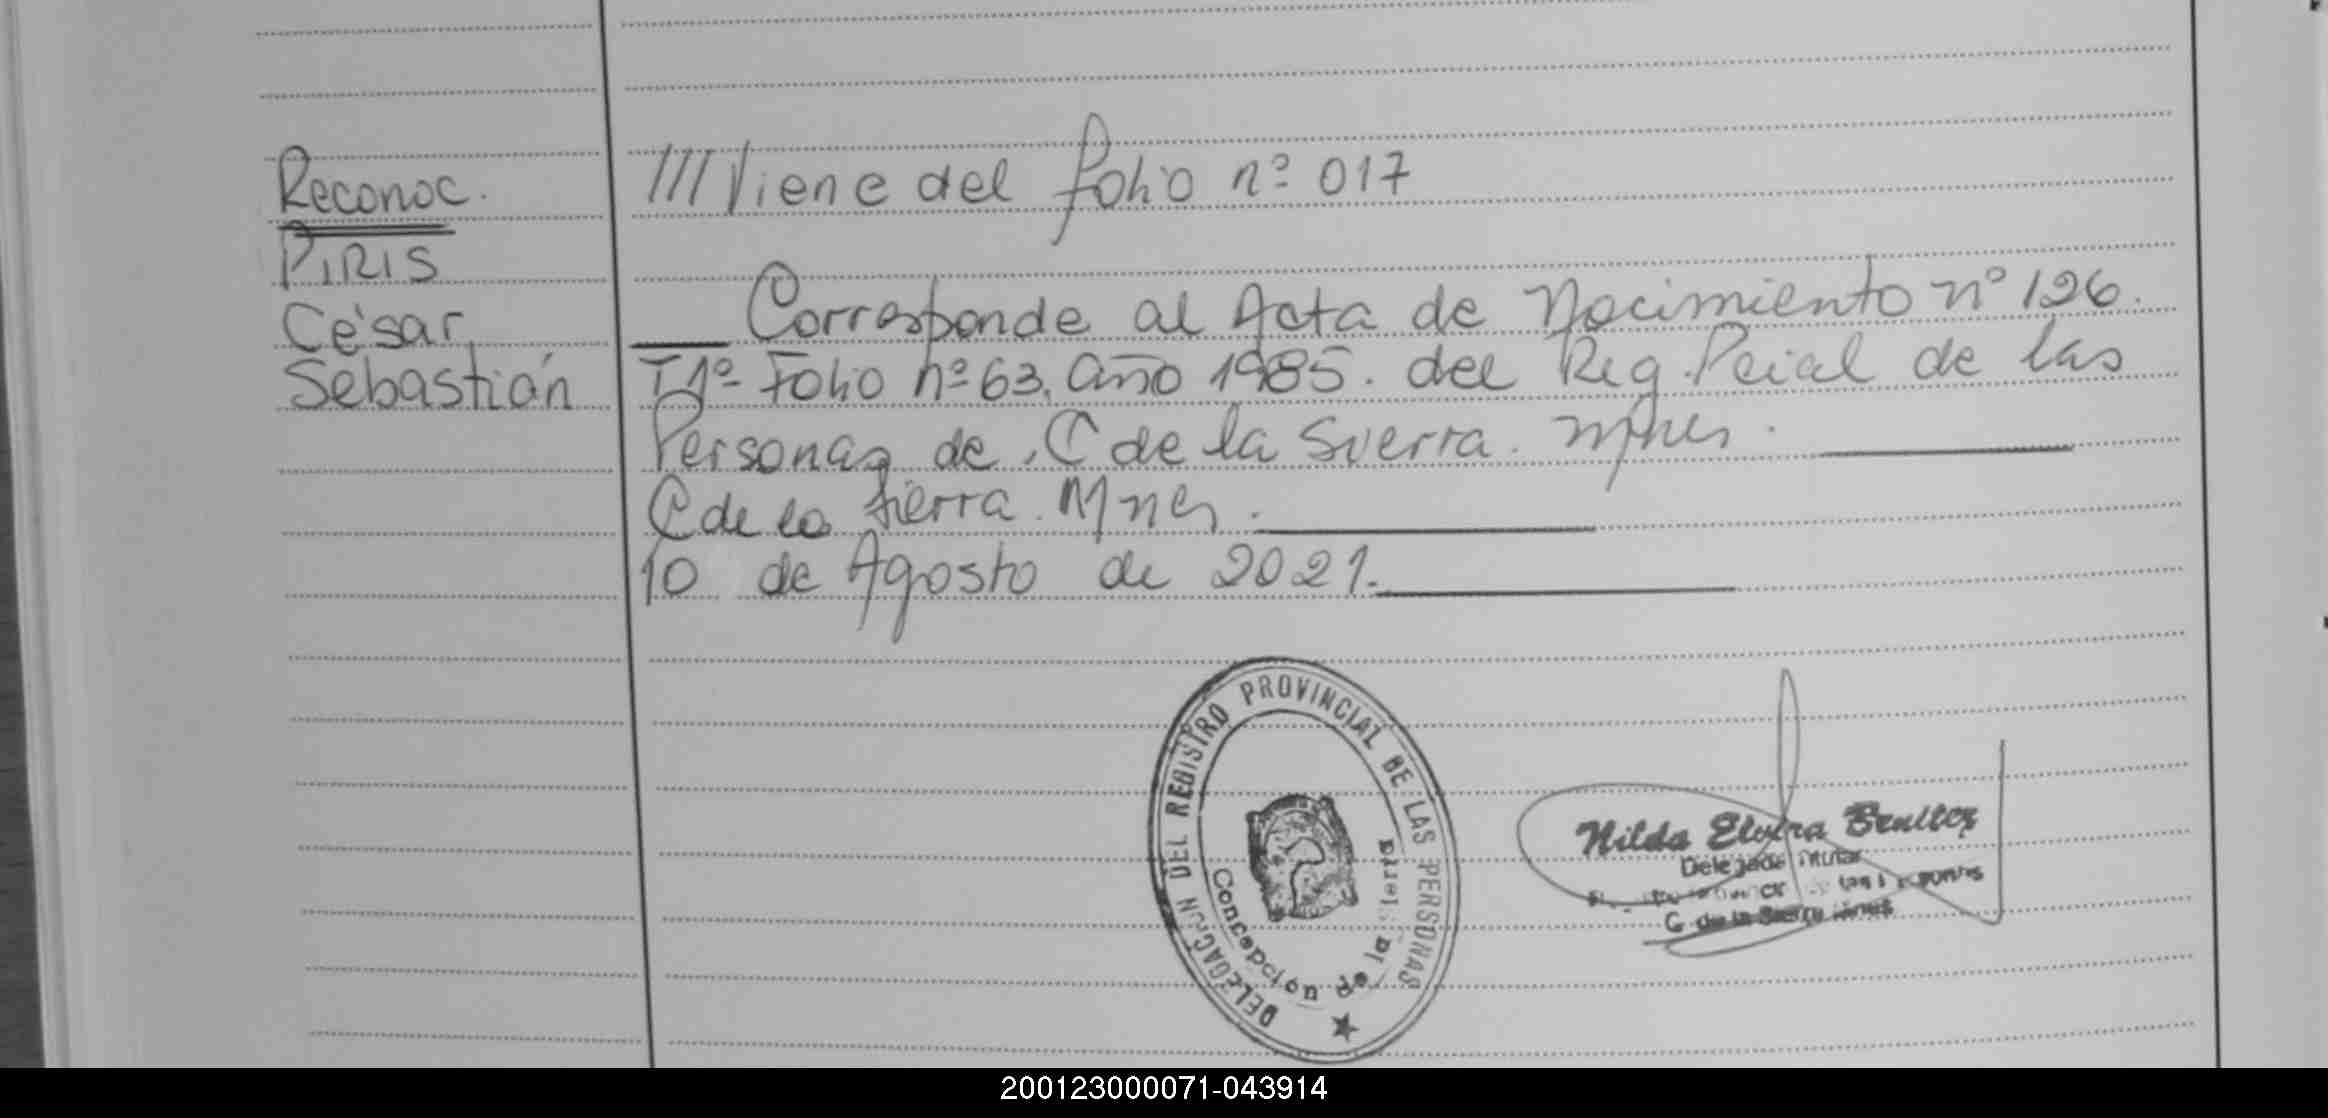 Reconoc.
PIRIS
César
Sebastián
///Viene del folio nº 017
Corresponde al Acta de Nacimiento nº 126.
T1º Folio nº 63. Año 1985. del Reg. Pcial de las
Personas de C de la Sierra. Mnes.
C de la Sierra. Mnes.
10 de Agosto de 2021.
DELEGACION DEL REGISTRO PROVINCIAL DE LAS PERSONAS
Concepción de la Sierra
Nilda Elvira Benitez
Delegada Titular
C de la Sierra Mnes
200123000071-043914